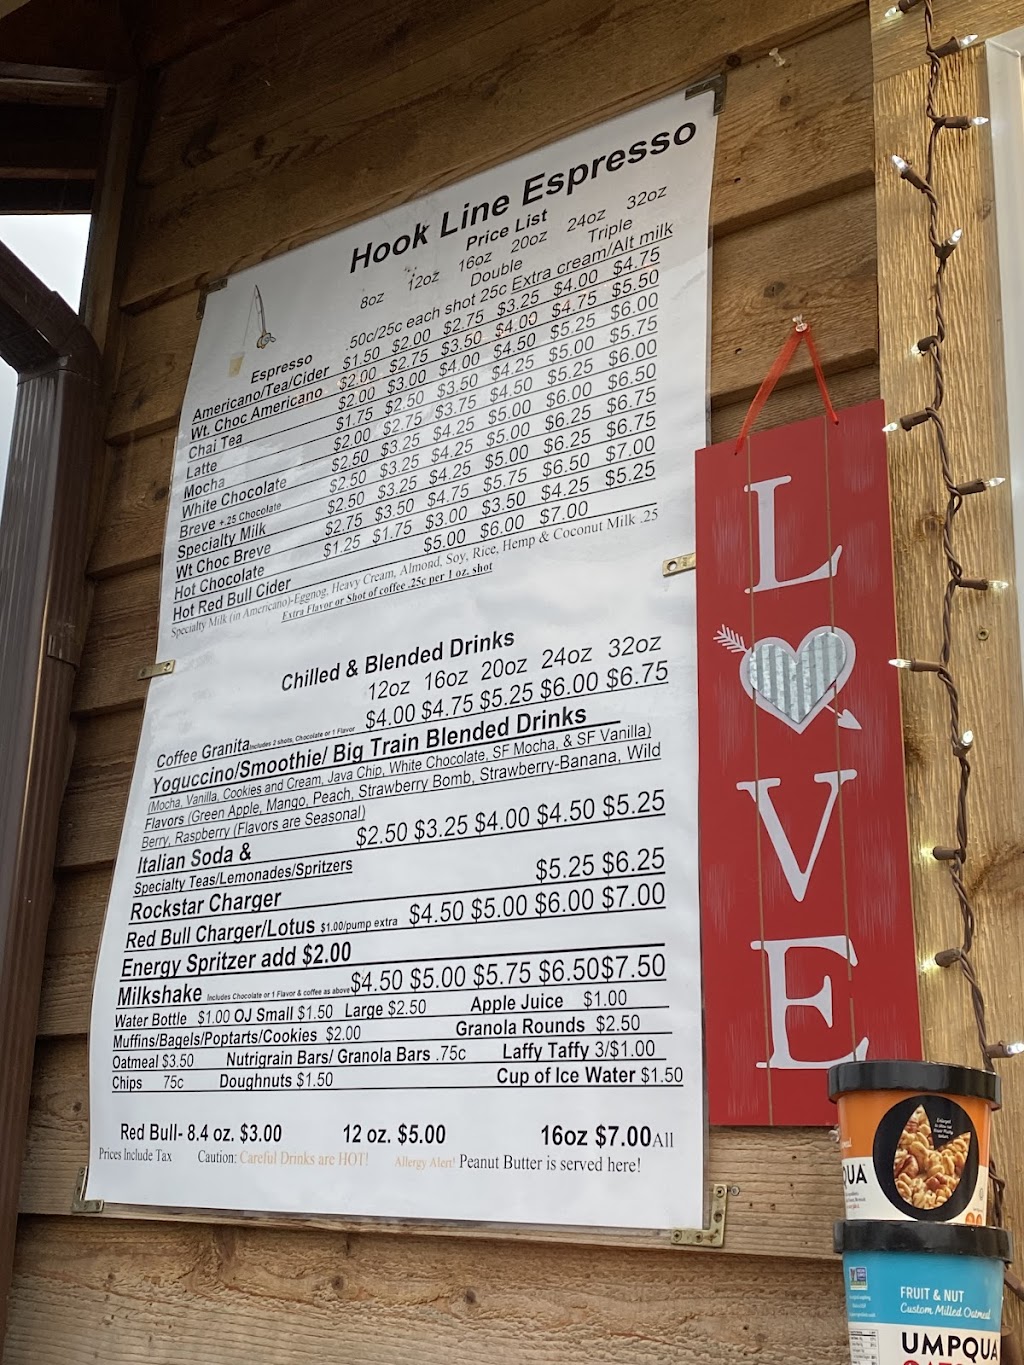 Hook Line Espresso
Price List
8oz 12oz 16oz 20oz 24oz 32oz
Double Triple
Espresso .50c/25c each shot 25c Extra cream/Alt milk
Americano/Tea/Cider $1.50 $2.00 $2.75 $3.25 $4.00 $4.75
Wt. Choc Americano $2.00 $2.75 $3.50 $4.00 $4.75 $5.50
Chai Tea $2.00 $3.00 $4.00 $4.50 $5.25 $6.00
Latte $1.75 $2.50 $3.50 $4.25 $5.00 $5.75
Mocha $2.00 $2.75 $3.75 $4.50 $5.25 $6.00
White Chocolate $2.50 $3.25 $4.25 $5.00 $6.00 $6.50
Breve +.25 Chocolate $2.50 $3.25 $4.25 $5.00 $6.25 $6.75
Specialty Milk $2.50 $3.25 $4.25 $5.00 $6.25 $6.75
Wt Choc Breve $2.75 $3.50 $4.75 $5.75 $6.50 $7.00
Hot Chocolate $1.25 $1.75 $3.00 $3.50 $4.25 $5.25
Hot Red Bull Cider $5.00 $6.00 $7.00
Specialty Milk (in Americano)-Eggnog, Heavy Cream, Almond, Soy, Rice, Hemp & Coconut Milk .25
Extra Flavor or Shot of coffee .25c per 1 oz. shot
Chilled & Blended Drinks
12oz 16oz 20oz 24oz 32oz
Coffee Granita includes 2 shots, Chocolate or 1 Flavor $4.00 $4.75 $5.25 $6.00 $6.75
Yoguccino/Smoothie/ Big Train Blended Drinks
(Mocha, Vanilla, Cookies and Cream, Java Chip, White Chocolate, SF Mocha, & SF Vanilla)
Flavors (Green Apple, Mango, Peach, Strawberry Bomb, Strawberry-Banana, Wild
Berry, Raspberry (Flavors are Seasonal)
Italian Soda & $2.50 $3.25 $4.00 $4.50 $5.25
Specialty Teas/Lemonades/Spritzers
Rockstar Charger $5.25 $6.25
Red Bull Charger/Lotus $1.00/pump extra $4.50 $5.00 $6.00 $7.00
Energy Spritzer add $2.00
Milkshake Includes Chocolate or 1 Flavor & coffee as above $4.50 $5.00 $5.75 $6.50 $7.50
Water Bottle $1.00 OJ Small $1.50 Large $2.50 Apple Juice $1.00
Muffins/Bagels/Poptarts/Cookies $2.00 Granola Rounds $2.50
Oatmeal $3.50 Nutrigrain Bars/ Granola Bars .75c Laffy Taffy 3/$1.00
Chips 75c Doughnuts $1.50 Cup of Ice Water $1.50
Red Bull- 8.4 oz. $3.00 12 oz. $5.00 16oz $7.00 All
Prices Include Tax Caution: Careful Drinks are HOT! Allergy Alert! Peanut Butter is served here!
L
V
E
QUA
FRUIT & NUT
Custom Milled Oatmeal
UMPQUA